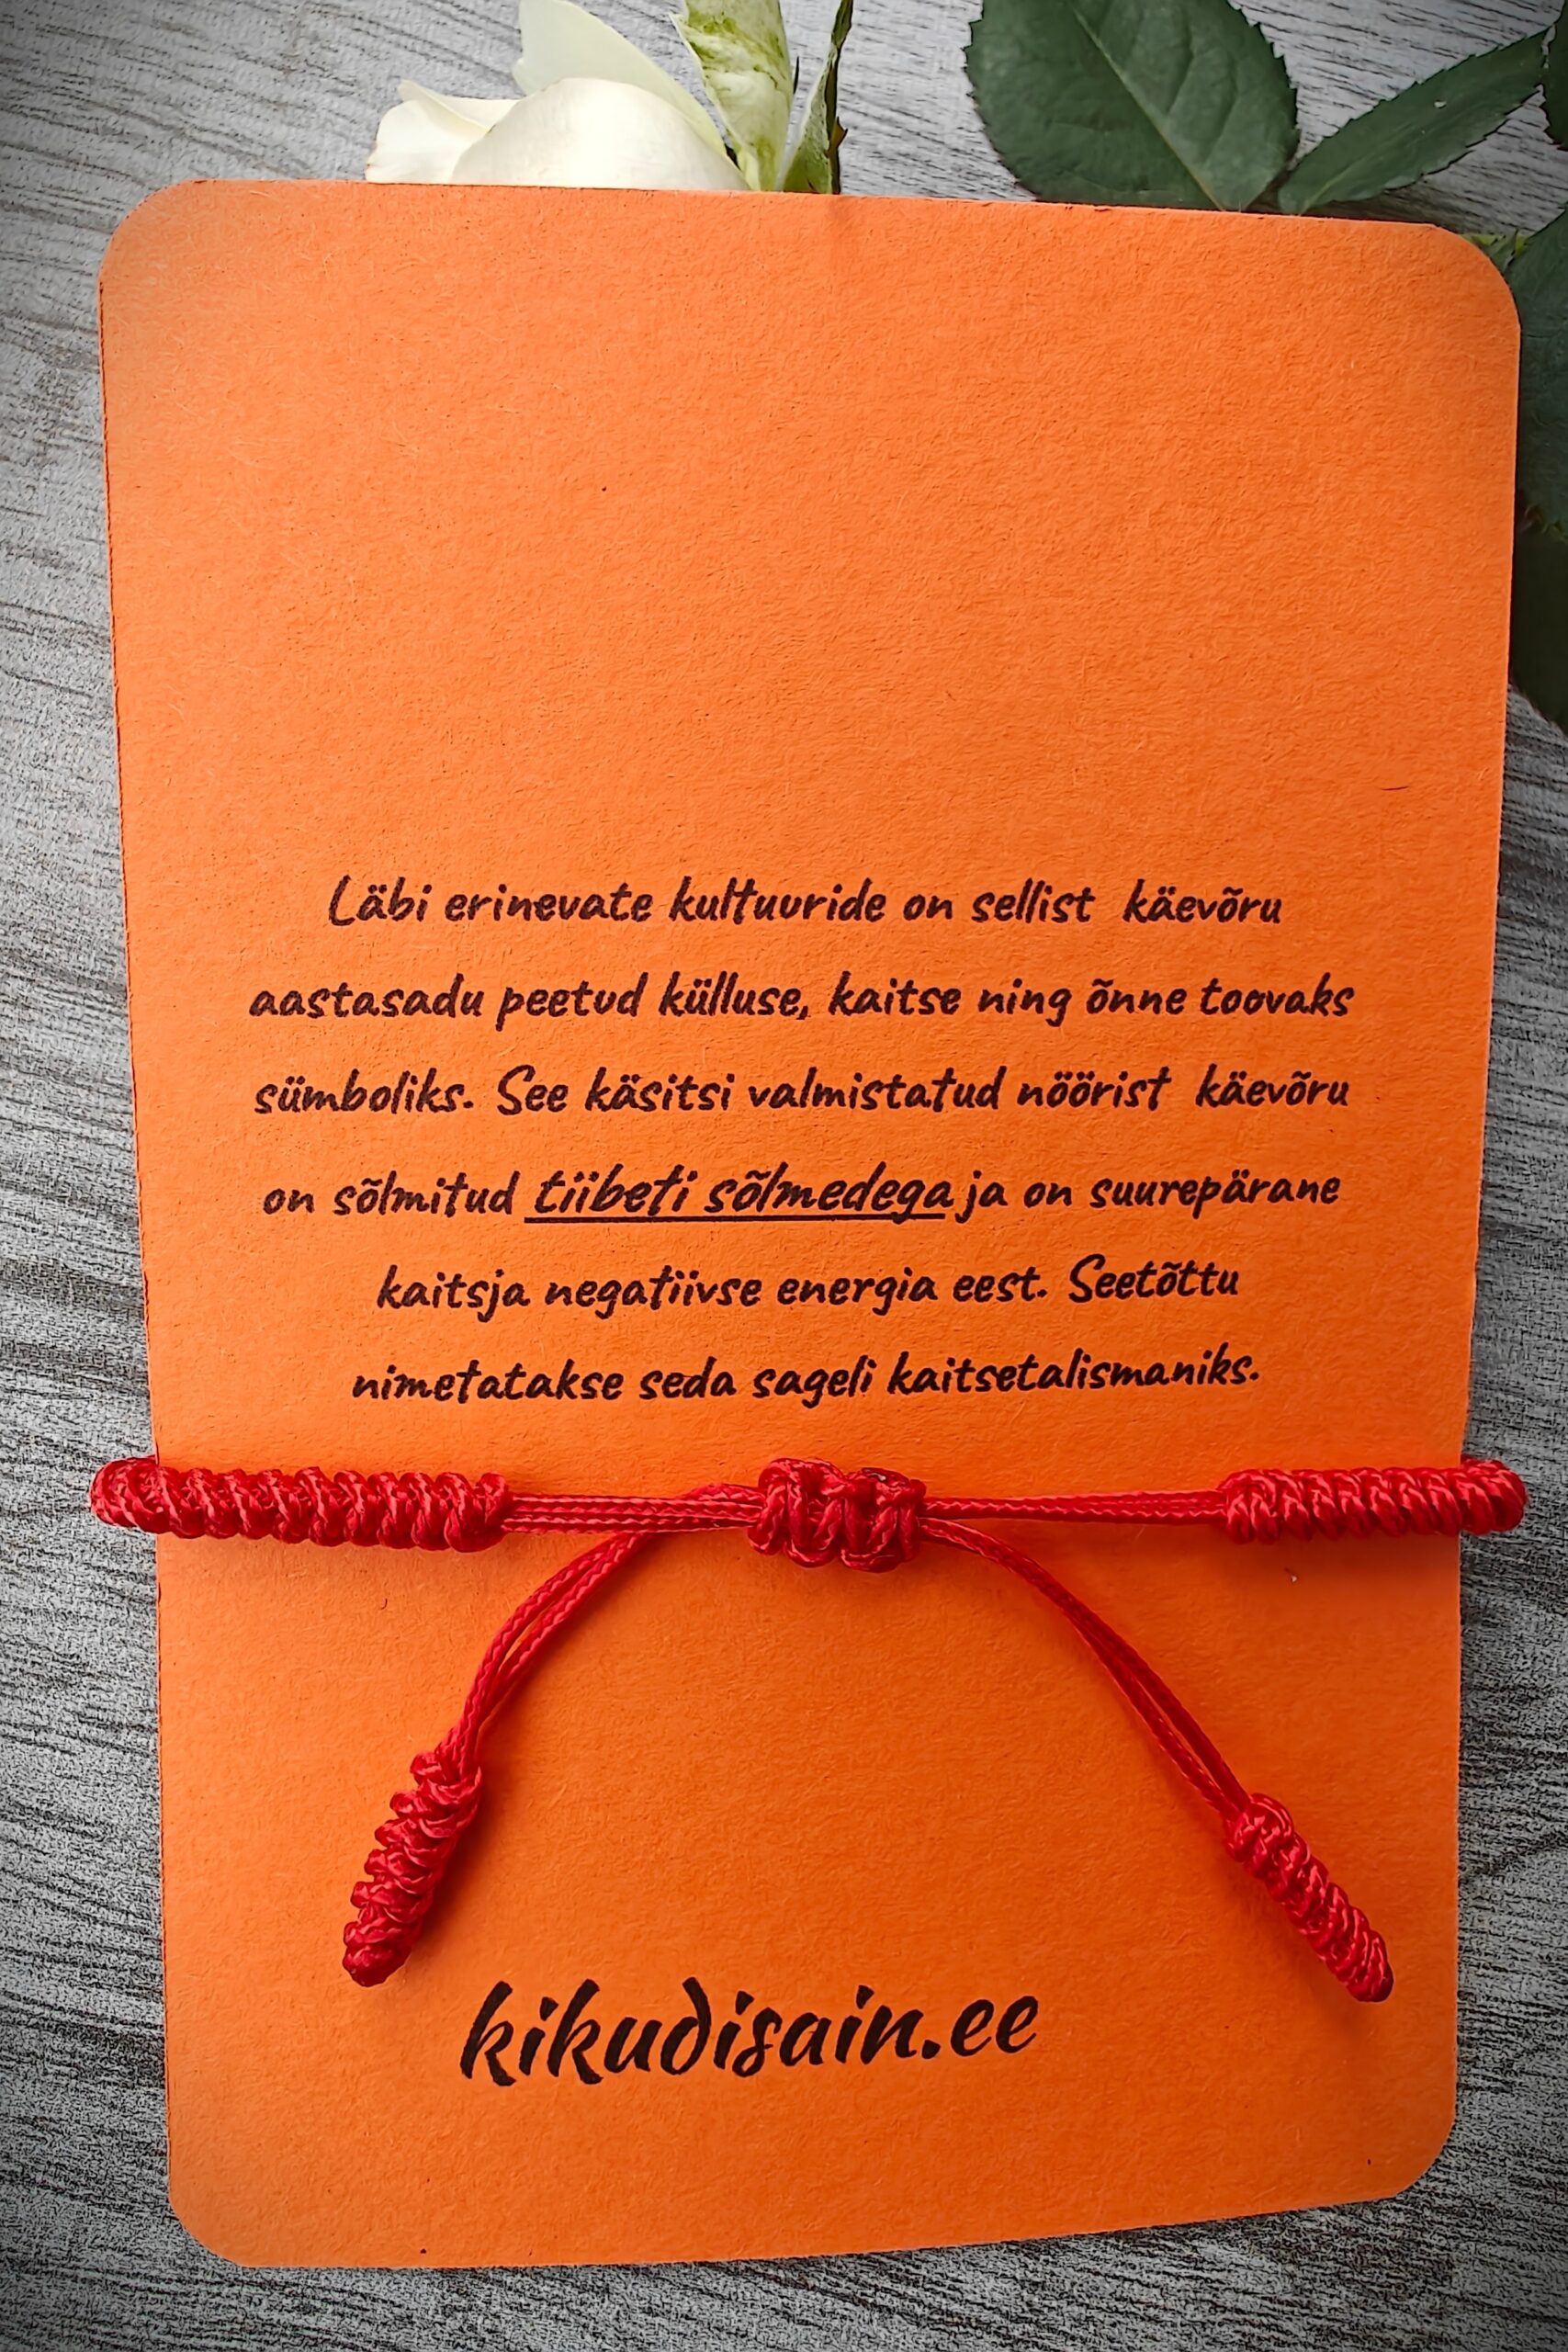 Läbi erinevate kultuuride on sellist käevõru
aastasadu peetud külluse, kaitse ning õnne toovaks
sümboliks. See käsitsi valmistatud nöörist käevõru
on sõlmitud tiibeti sõlmedega ja on suurepärane
kaitsja negatiivse energia eest. Seetõttu
nimetatakse seda sageli kaitsetalismaniks.
kikudisain.ee